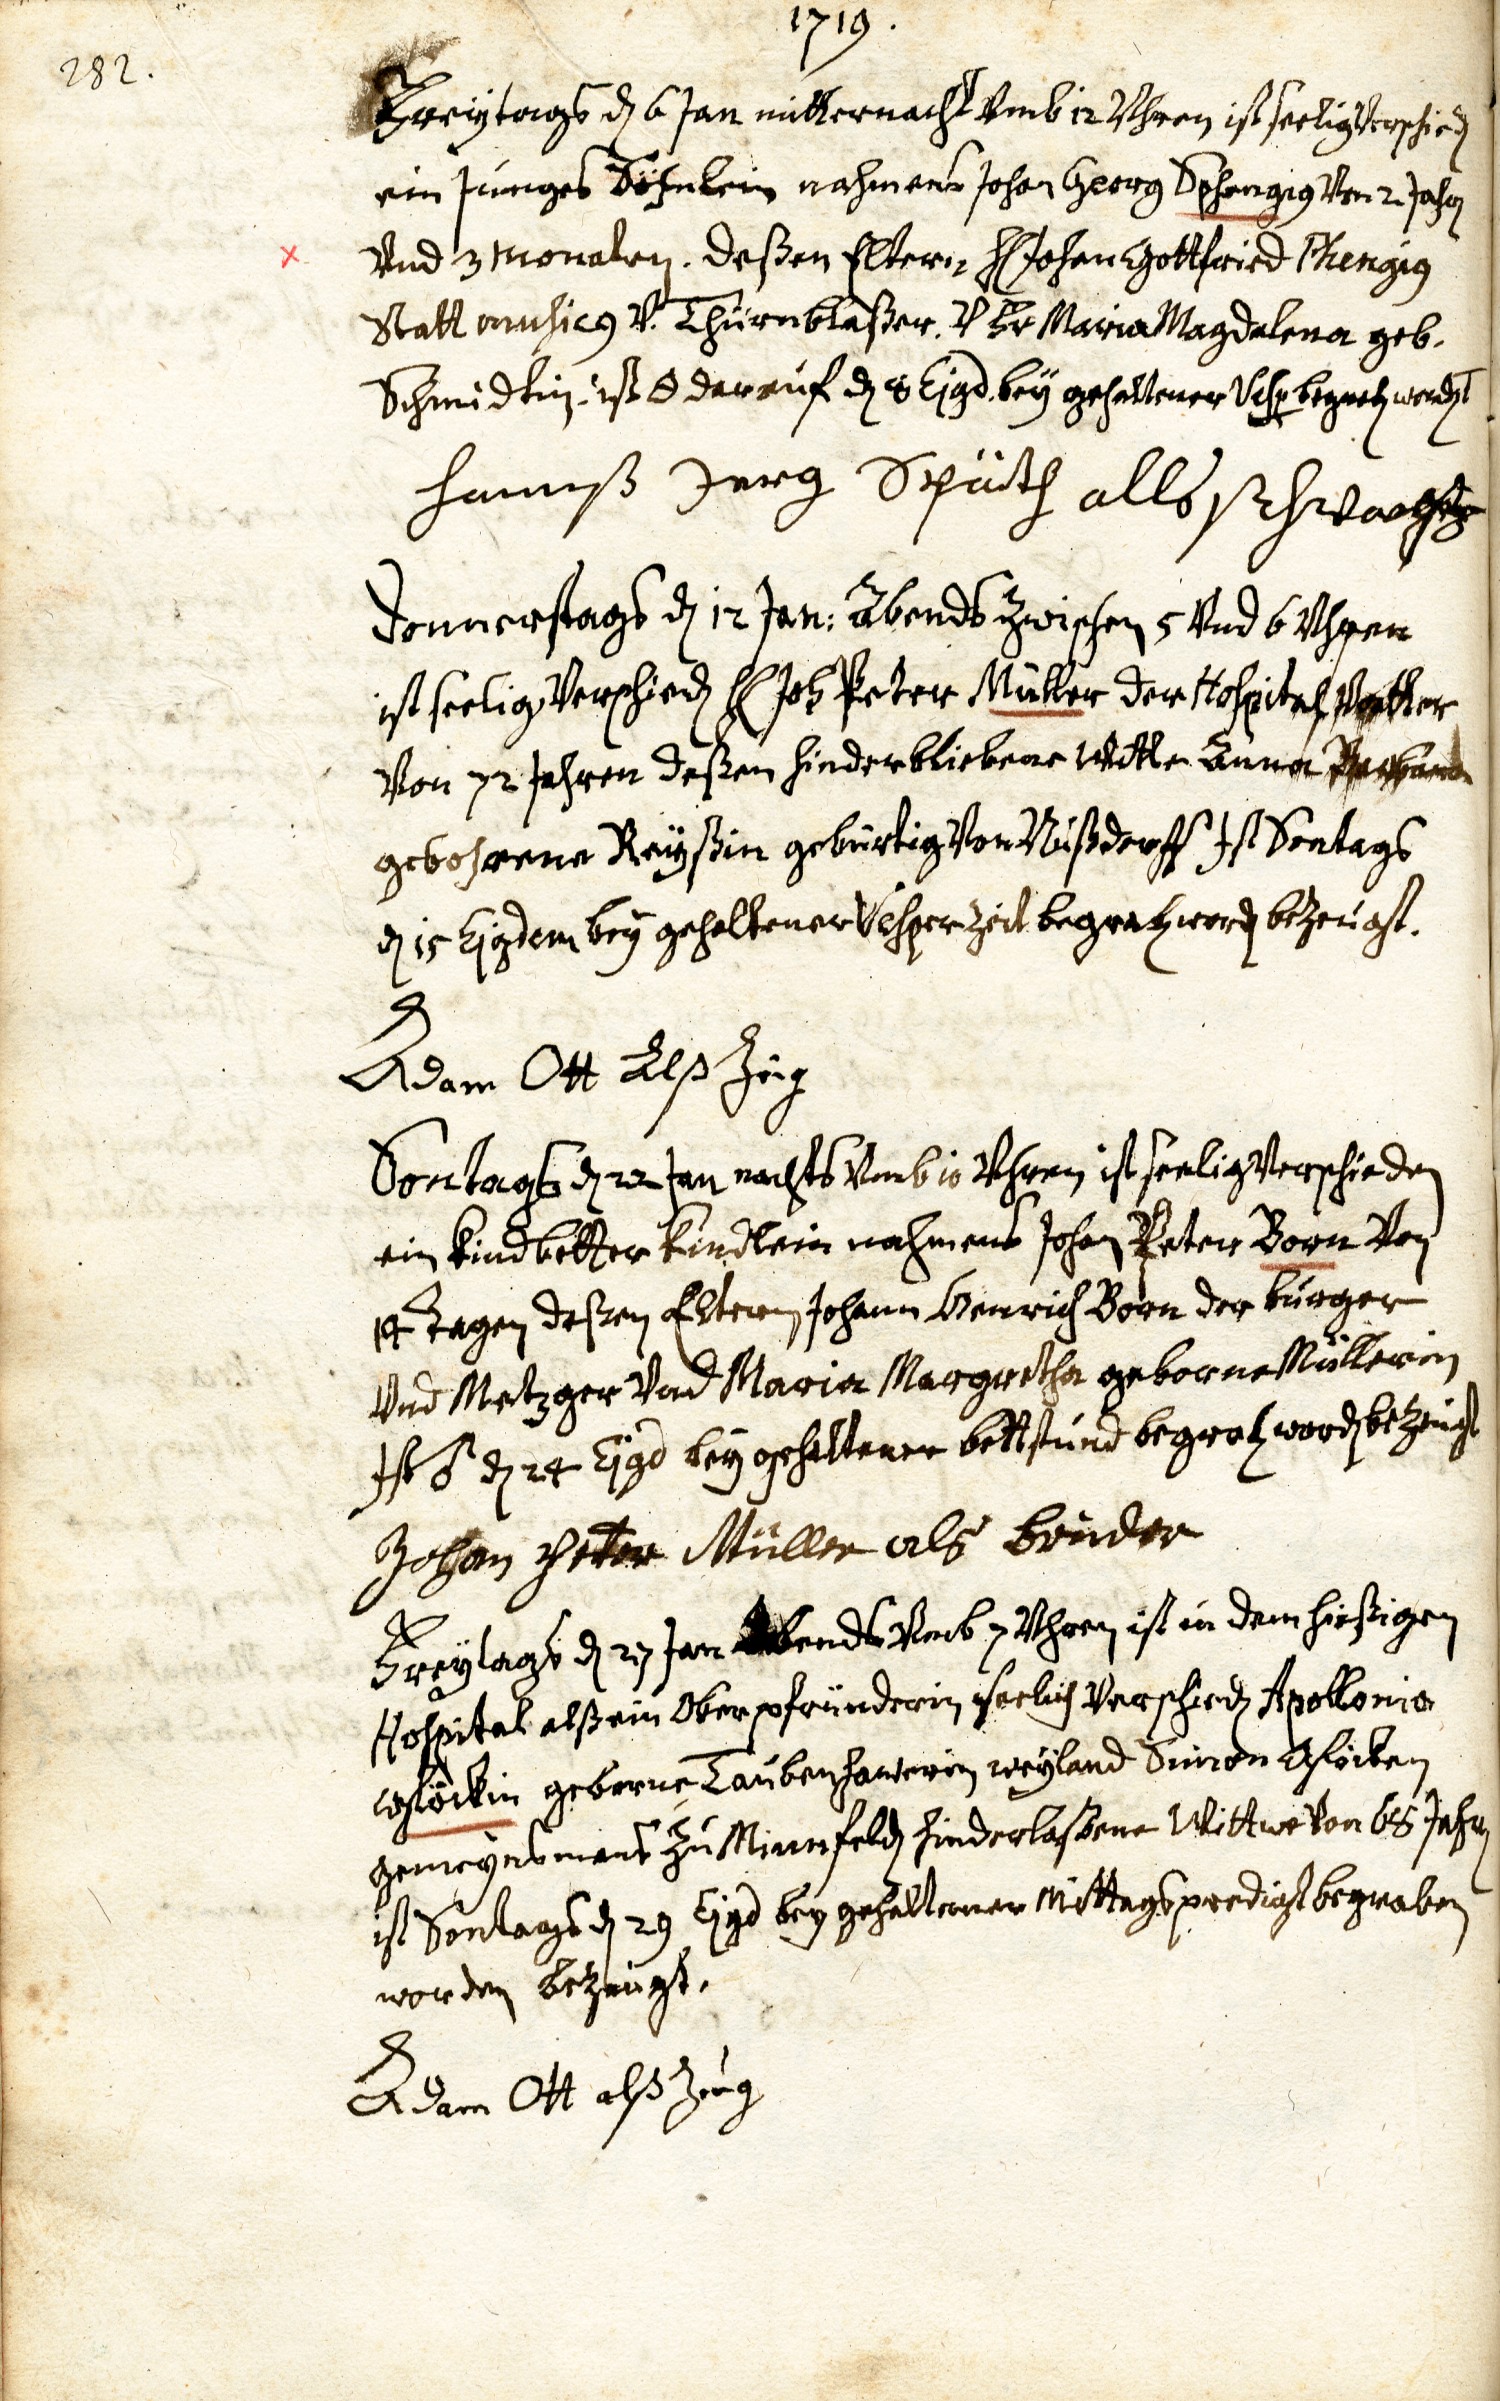 1719.
282.
Freytags d. 6 Jan mitternacht Vmb 12 Uhren ist seelig Verschied
ein Junges Söhnlein nahmens Johan Georg Von 2. Jahr
Vnd 3 Monaten. deßen Eltern H. Johan Gottfried
Statt musicus V. Thürnblaßer. V Fr Maria Magdalena geb.
Schmidtin. ist darauf d. 8 Ejgd. bey gehaltener Vesp begrab word
hannß Jerg Späth allß
Donnerstags d. 12 Jan: Abends Zwischen 5 Vnd 6 Uhren
ist seelig Verschied H. Joh Peter Müller der Hospital
Von 72 Jahren deßen hinderbliebene Wittw Anna Barbara
gebohrene Reyßin gebürtig Von Nußdorff Ist Sontags
d. 15 Ejgdem bey gehaltener Vesper Zeit begrab word bezeugt.
Adam Ott Alß Zeug
Sontags d. 22 Jan nachts Vmb 10 Uhren ist seelig Verschieden
ein kindbetter kindlein nahmens Johan Peter Born Von
14 Tagen deßen Eltern Johann Henrich Born der burger
Vnd Metzger Vnd Maria Margretha geborne Müllerin
Ist d. 24 Ejgd bey gehaltener bettstund begrab word bezeugt
Johan Peter Müller als bruder
Freytags d. 27 Jan Abends Vmb 7 Uhren ist in dem hießigen
Hospital alß ein Oberpfründerin seelich Verschied Apollonia
Glöckin geborne Taubenhawerin weyland Simon Glöcken
gemeynsmans Zu Minnfeld hinderlaßene Wittwe Von 68 Jahr
ist Sontags d. 29 Ejgd bey gehaltener Mittagspredigt begraben
worden bezeugt.
Adam Ott alß Zeug